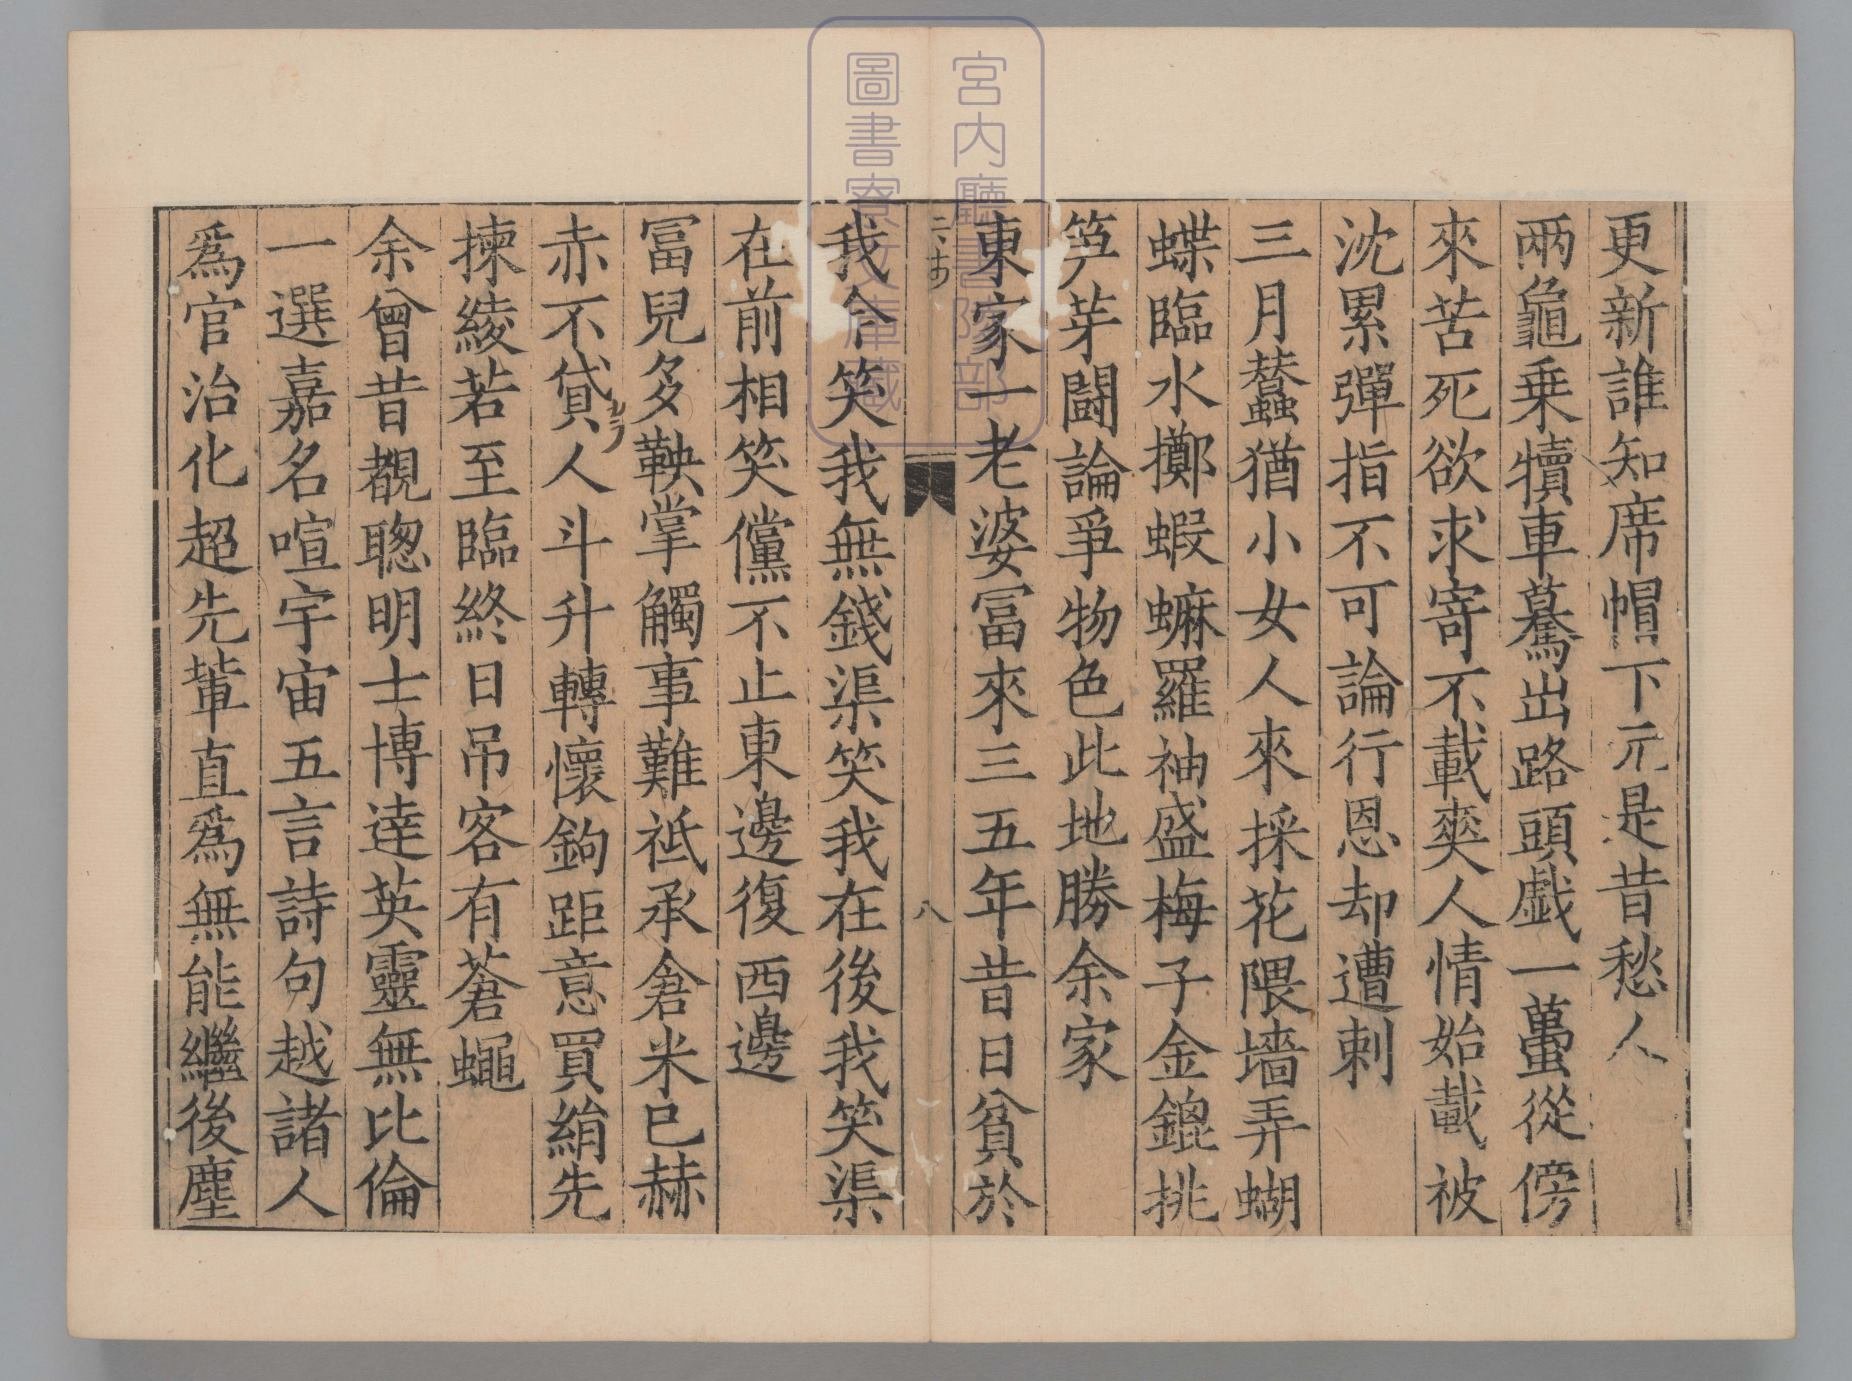 更新誰知席帽下元是昔愁人
兩龜乗犢車驀出路頭戯一蠆從傍
來苦死欲求寄不載爽人情始載被
沈累彈指不可論行恩却遭刺
三月蠶猶小女人來採花隈墻弄蝴
蝶臨水擲蝦蟆羅袖盛梅子金鎞挑
笋芽鬪論爭物色此地勝余家
東家一老婆冨來三五年昔日貧於
寒山
八
我今笑我無錢渠笑我在後我笑渠
在前相笑儻不止東邊復西邊
冨兒多鞅掌觸事難祗承倉米已赫
赤不貸人斗升轉懷鉤距意買絹先
揀綾若至臨終日吊客有蒼蠅
余曾昔覩聦明士博達英靈無比倫
一選嘉名喧宇宙五言詩句越諸人
爲官治化超先軰直爲無能繼後塵
宮内廳書陵部
圖書寮文庫藏